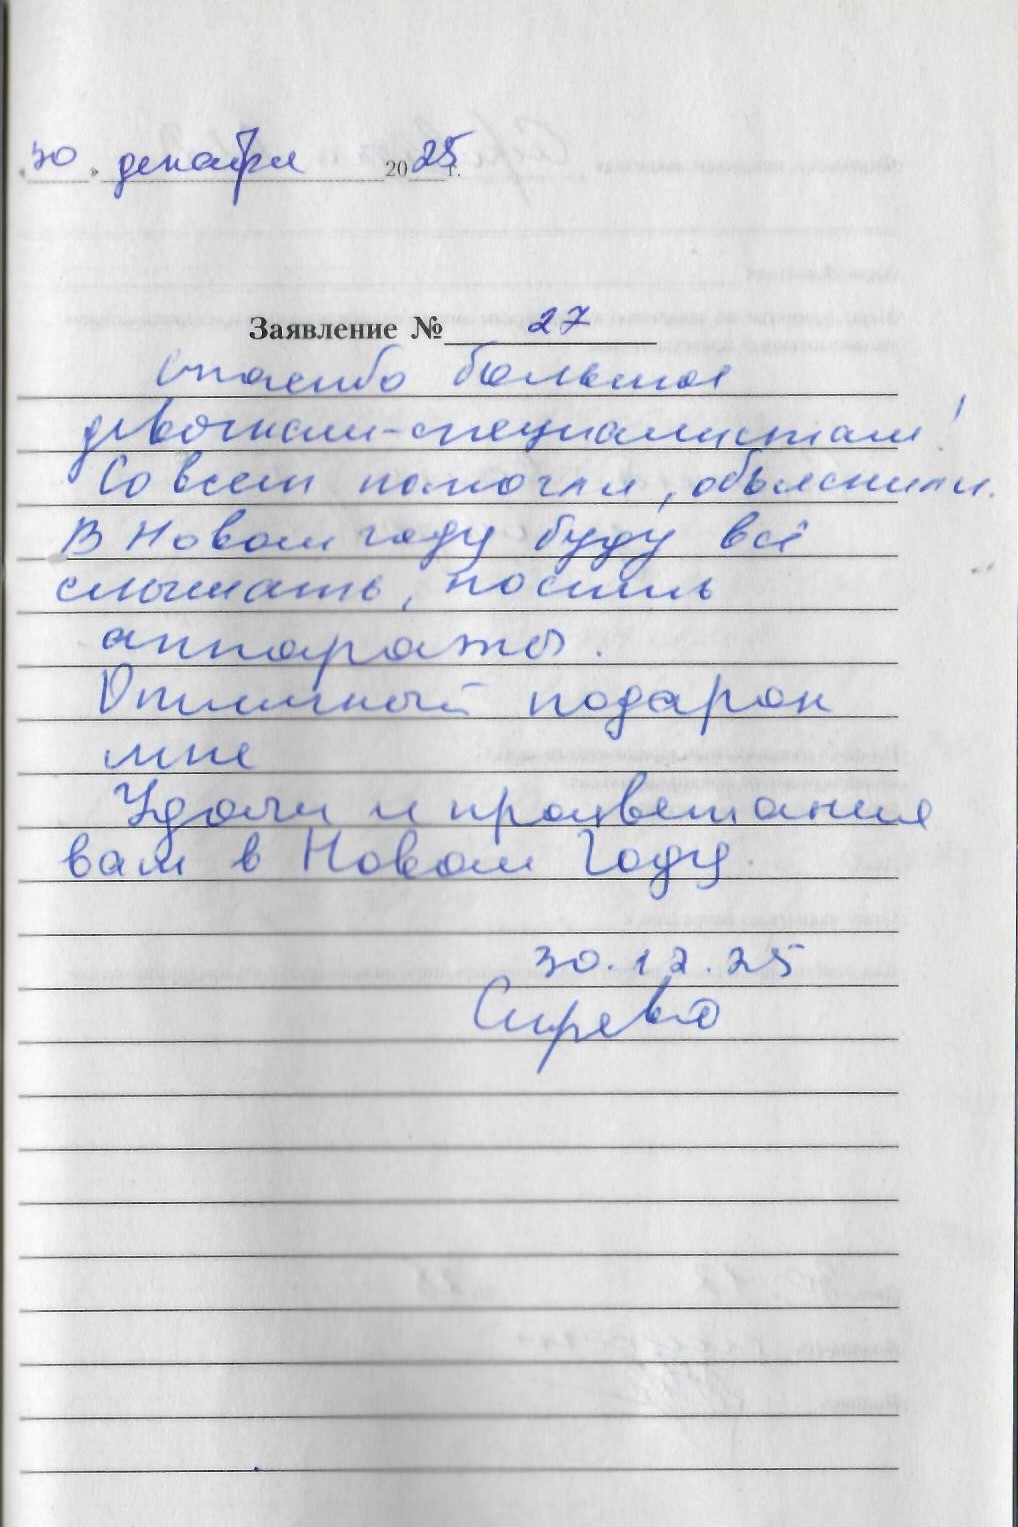 "30" декабря 2025 г.
Заявление № 27
Спасибо большое
девочкам-специалистам!
Со всем помогли, объяснили.
В Новом году буду всё
слышать, носить
аппараты.
Отличный подарок
мне
Удачи и процветания
вам в Новом Году.
30.12.25